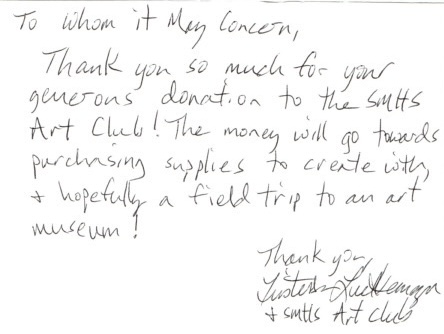 To Whom it May Concern,
Thank you so much for your
generous donation to the SMHS
Art Club! The money will go towards
purchasing supplies to create with,
+ hopefully a field trip to an art
museum!
Thank you,
+ SMHS Art Club